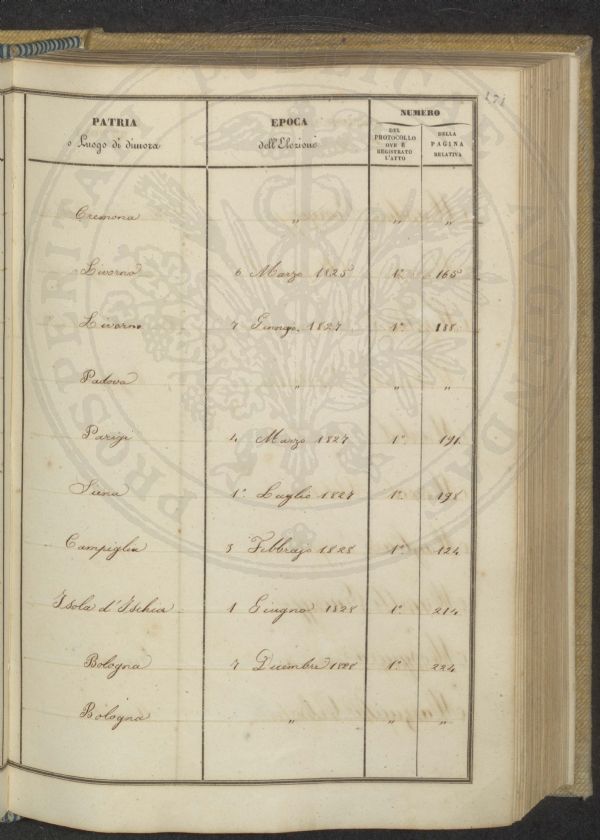 171
PATRIA
o Luogo di dimora
EPOCA
dell'Elezione
NUMERO
DEL
PROTOCOLLO
OVE È
REGISTRATO
L'ATTO
DELLA
PAGINA
RELATIVA
Cremona " " "
Livorno 6 Marzo 1825 1° 165
Livorno 7 1827 1° 188
Padova " " "
Parigi 4 Marzo 1827 1° 191
Siena 1° Luglio 1827 1° 198
Campiglia 3 Febbrajo 1828 1° 124
Isola d'Ischia 1 Giugno 1828 1° 214
Bologna 7 Dicembre 1828 1° 224
Bologna " " "
PROSPERITATI PUBLICAE AUGENDAE